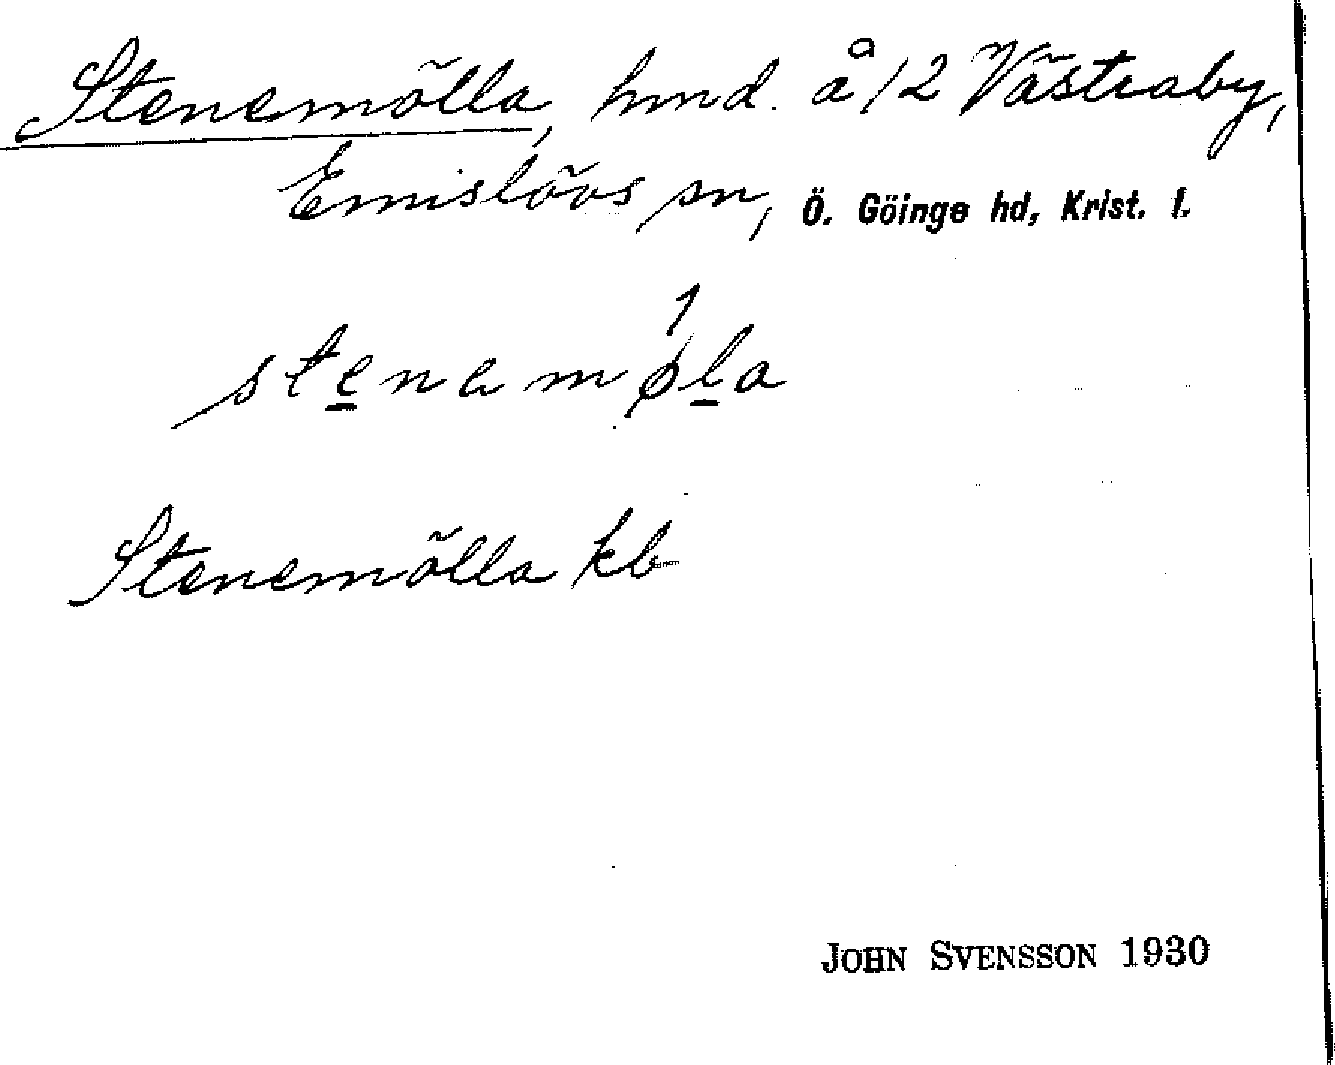 Stenemölla, hmd. å 12 Västraby,
Emislövs sn, Ö. Göinge hd, Krist. l.
stenamø1la
Stenemölla kb
JOHN SVENSSON 1930